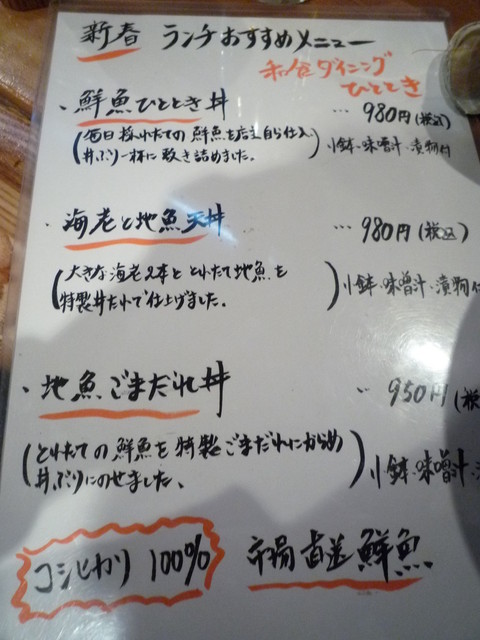 新春 ランチおすすめメニュー
和食ダイニング
ひととき
・鮮魚ひととき丼 … 980円(税込)
(毎日採れたての鮮魚を店主自ら仕入
丼ぶり一杯に敷き詰めました。) 小鉢・味噌汁・漬物付
・海老と地魚天丼 … 980円(税込)
(大きな海老2本ととれたて地魚を
特製丼たれで仕上げました。) 小鉢・味噌汁・漬物
・地魚ごまだれ丼 … 950円(税
(とれたての鮮魚を特製ごまだれにからめ
丼ぶりにのせました、) 小鉢・味噌汁・
コシヒカリ 100%
市場直送鮮魚